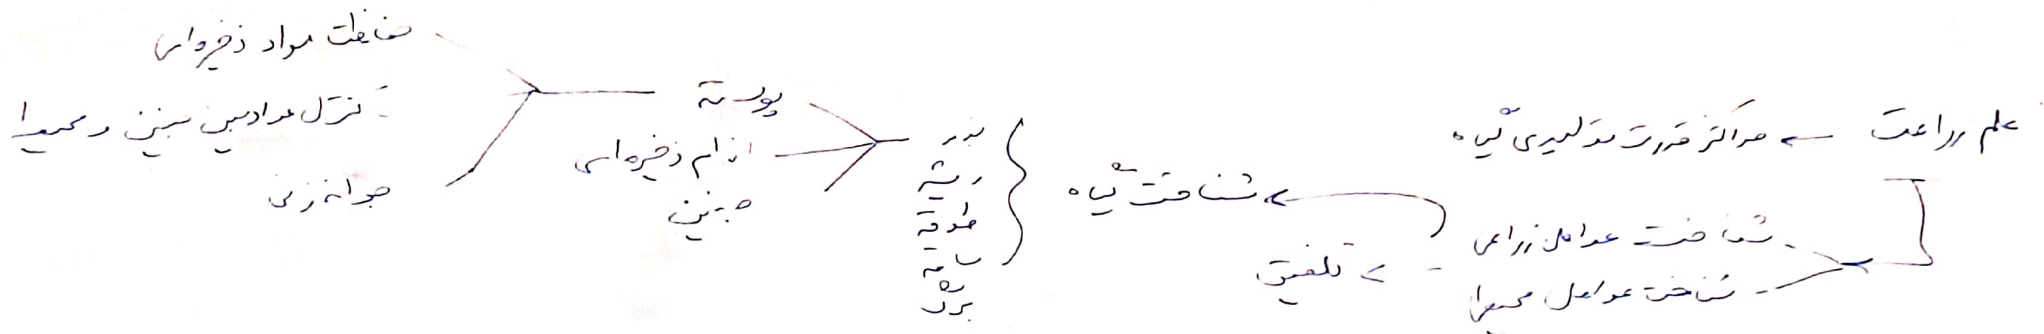 علم زراعت ← حداکثر قدرت تولیدی گیاه
شناخت عوامل زراعی
شناخت عوامل محیطی
← شناخت گیاه
← تلفیق
بذر
ریشه
طوقه
ساقه
برگ
پوسته
اندام ذخیره‌ای
جنین
حفاظت مواد ذخیره‌ای
کنترل مواد بین جنین و محیط
جوانه زنی